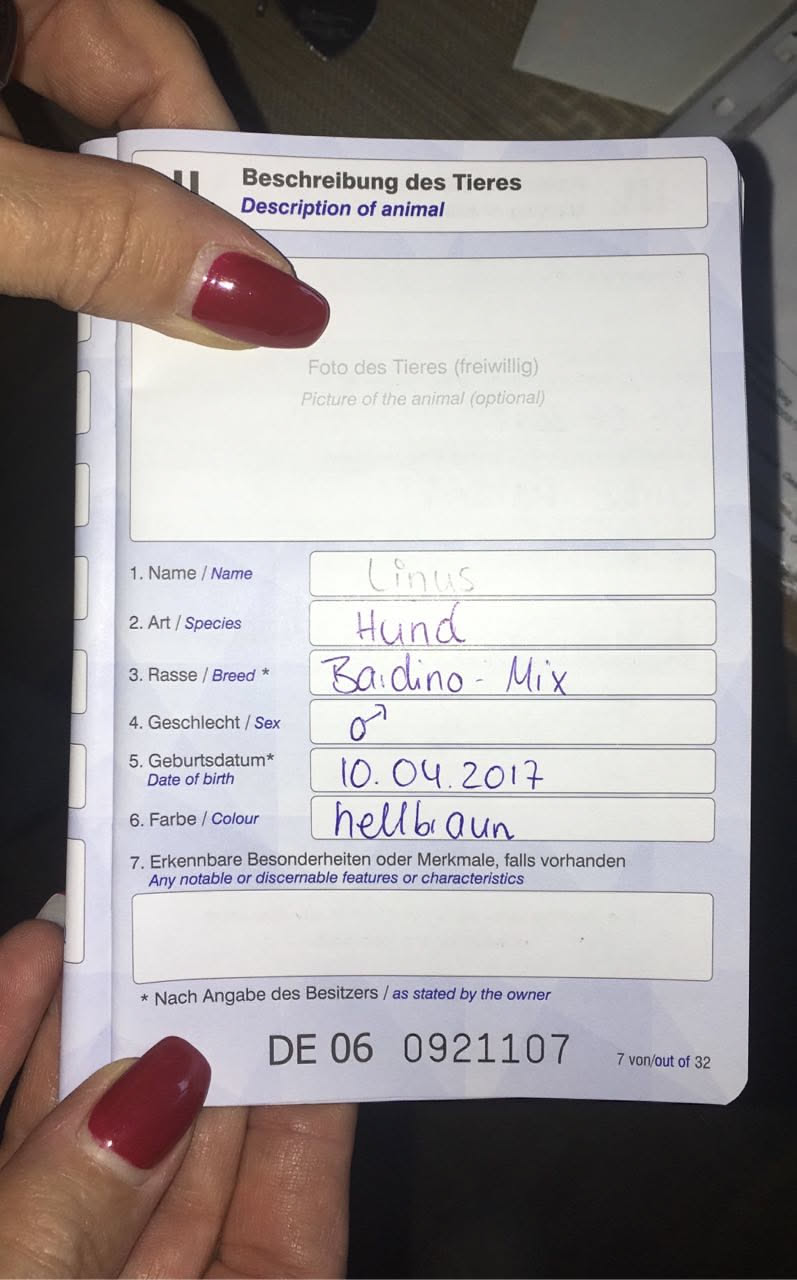 Beschreibung des Tieres
Description of animal
Foto des Tieres (freiwillig)
Picture of the animal (optional)
1. Name / Name Linus
2. Art / Species Hund
3. Rasse / Breed * Bardino - Mix
4. Geschlecht / Sex ♂
5. Geburtsdatum* 10.04.2017
Date of birth
6. Farbe / Colour hellbraun
7. Erkennbare Besonderheiten oder Merkmale, falls vorhanden
Any notable or discernable features or characteristics
* Nach Angabe des Besitzers / as stated by the owner
DE 06 0921107 7 von/out of 32